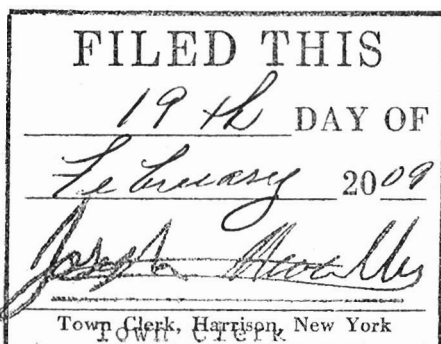 FILED THIS
19th DAY OF
February 2009
Joseph
Town Clerk, Harrison, New York
Town Clerk